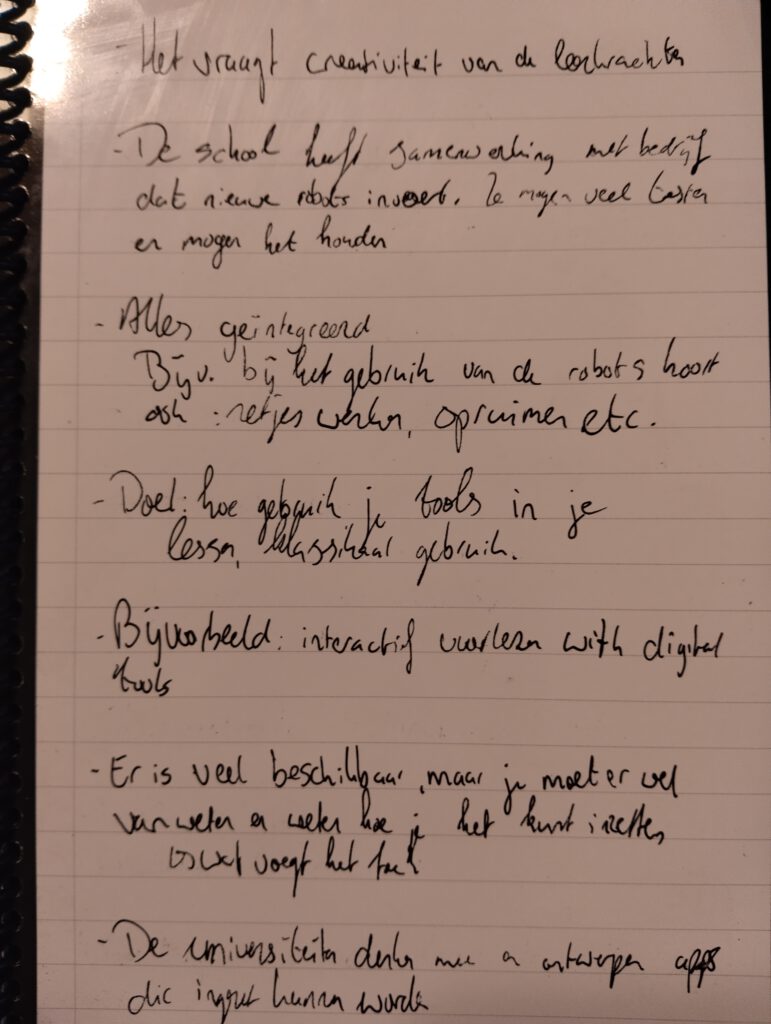 - Het vraagt creativiteit van de leerkrachten
- De school heeft samenwerking met bedrijf
dat nieuwe robots invoert. Ze mogen veel testen
en mogen het houden
- Alles geïntegreerd
Bijv. bij het gebruik van de robots hoort
ook : netjes werken, opruimen etc.
- Doel: hoe gebruik je tools in je
lessen, klassikaal gebruik.
- Bijvoorbeeld: interactief voorlezen with digital
tools
- Er is veel beschikbaar, maar je moet er wel
van weten en weten hoe je het kunt inzetten
wat voegt het toe
- De universiteiten denken mee en ontwerpen apps
die ingezet kunnen worden